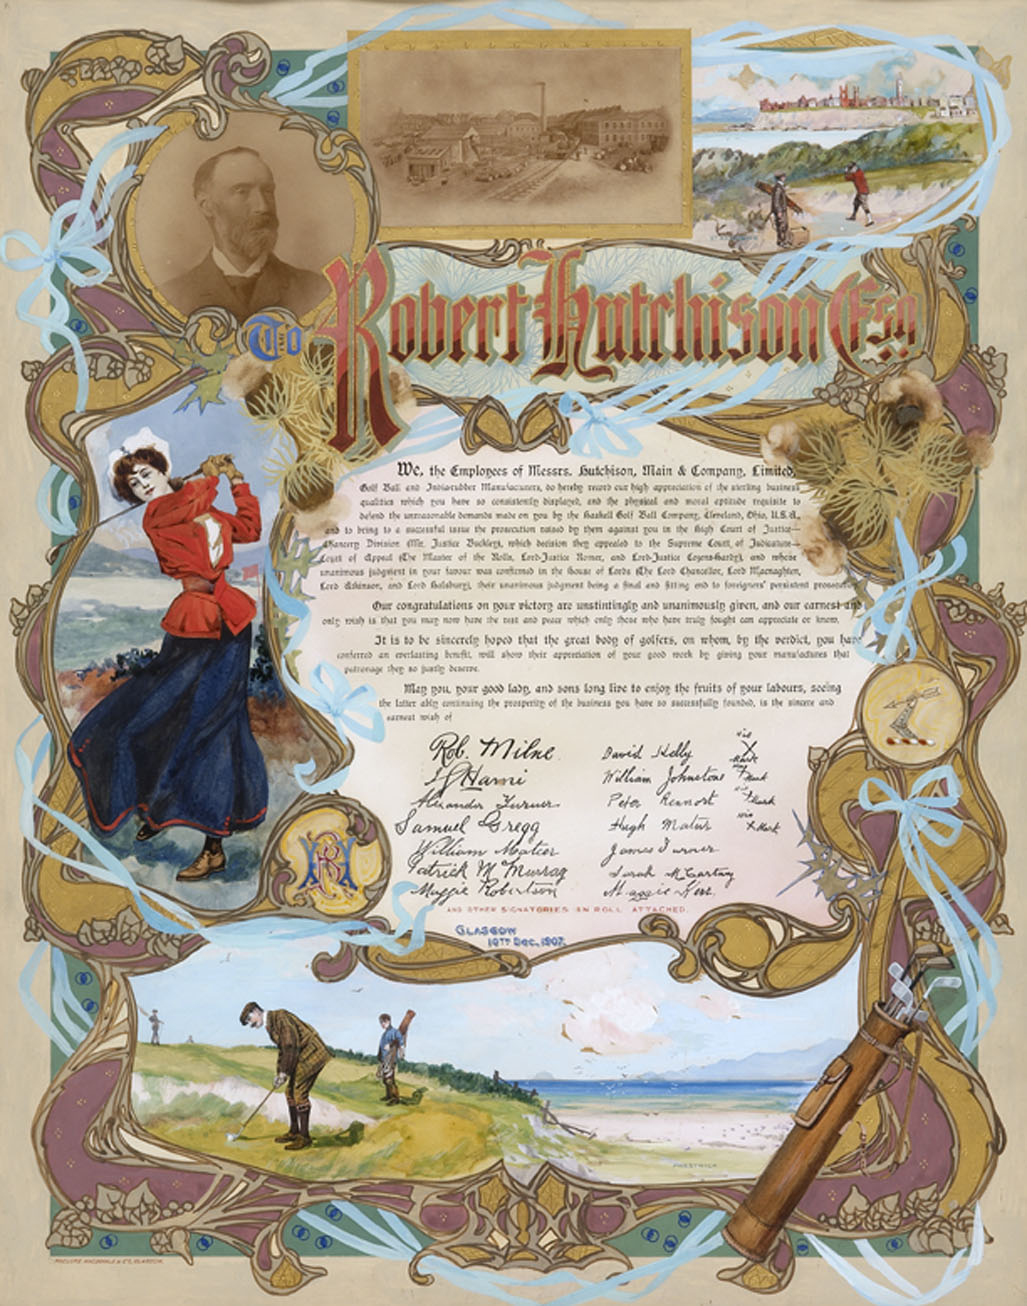 To Robert Hutchison Esq
We, the Employees of Messrs. Hutchison, Main & Company, Limited,
Golf Ball and Indiarubber Manufacturers, do hereby record our high appreciation of the sterling business
qualities which you have so consistently displayed, and the physical and moral aptitude requisite to
defend the unreasonable demands made on you by the Haskell Golf Ball Company, Cleveland, Ohio, U.S.A.,
and to bring to a successful issue the prosecution raised by them against you in the High Court of Justice—
Chancery Division (Mr. Justice Buckley), which decision they appealed to the Supreme Court of Judicature—
Court of Appeal (The Master of the Rolls, Lord-Justice Romer, and Lord-Justice Cozens-Hardy), and whose
unanimous judgment in your favour was confirmed in the House of Lords (The Lord Chancellor, Lord Macnaghten,
Lord Atkinson, and Lord Halsbury), their unanimous judgment being a final and fitting end to foreigners' persistent
Our congratulations on your victory are unstintingly and unanimously given, and our earnest and
only wish is that you may now have the rest and peace which only those who have truly fought can appreciate or know.
It is to be sincerely hoped that the great body of golfers, on whom, by the verdict, you have
conferred an everlasting benefit, will show their appreciation of your good work by giving your manufactures that
patronage they so justly deserve.
May you, your good lady, and sons long live to enjoy the fruits of your labours, seeing
the latter ably continuing the prosperity of the business you have so successfully founded, is the sincere and
earnest wish of
Rob. Milne
Alexander Turner
Samuel Gregg
William
Patrick McMurray
Maggie Robertson
David Kelly his X Mark
William Johnstone his X Mark
Peter his X Mark
Hugh his X Mark
James Turner
Sarah McCartny
Maggie Kerr
AND OTHER SIGNATORIES ON ROLL ATTACHED.
GLASGOW
10TH DEC. 1907.
RH
PRESTWICK
MACLURE MACDONALD & CO, GLASGOW.